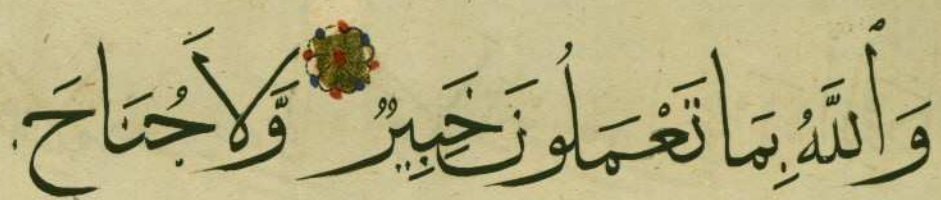 وَٱللَّهُ بِمَا تَعْمَلُونَ خَبِيرٌ وَّلَا جُنَاحَ